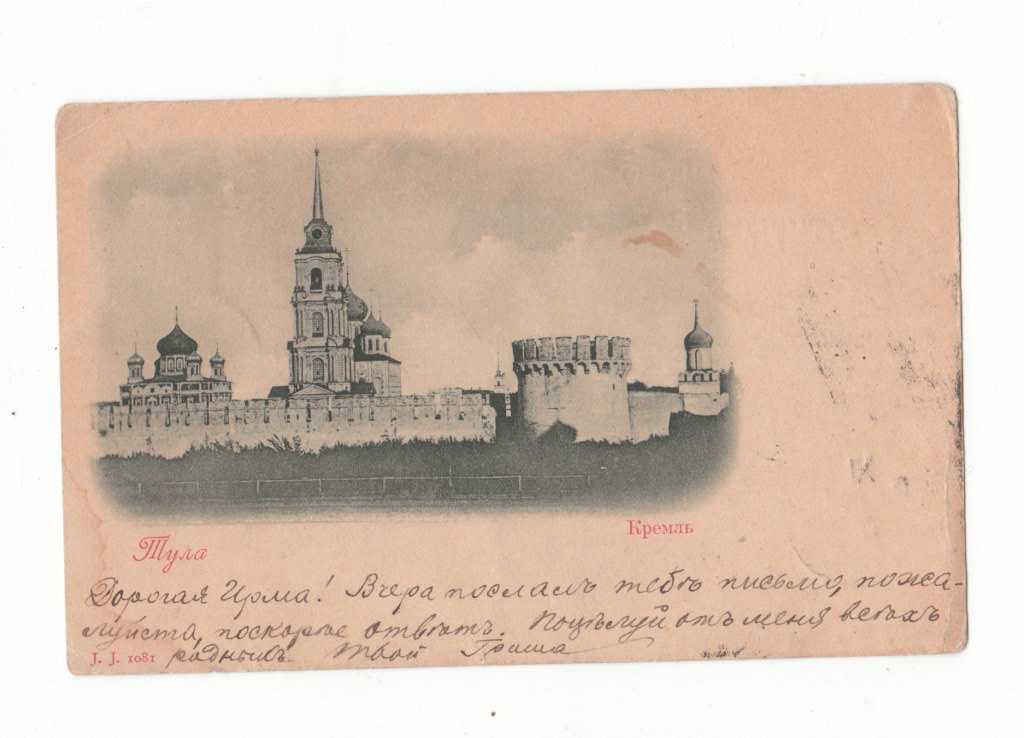 Кремль
Тула
Дорогая Ирма! Вчера послалъ тебѣ письмо, пожа-
луйста, поскорѣе отвѣть. Поцѣлуй отъ меня всѣхъ
J. J. 1081 родныхъ. Твой Гриша